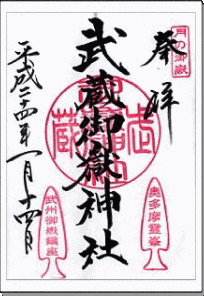 月の御嶽
奉拝
武蔵御嶽神社
奥多摩霊峯
武州御嶽鎮座
平成二十四年一月十四日